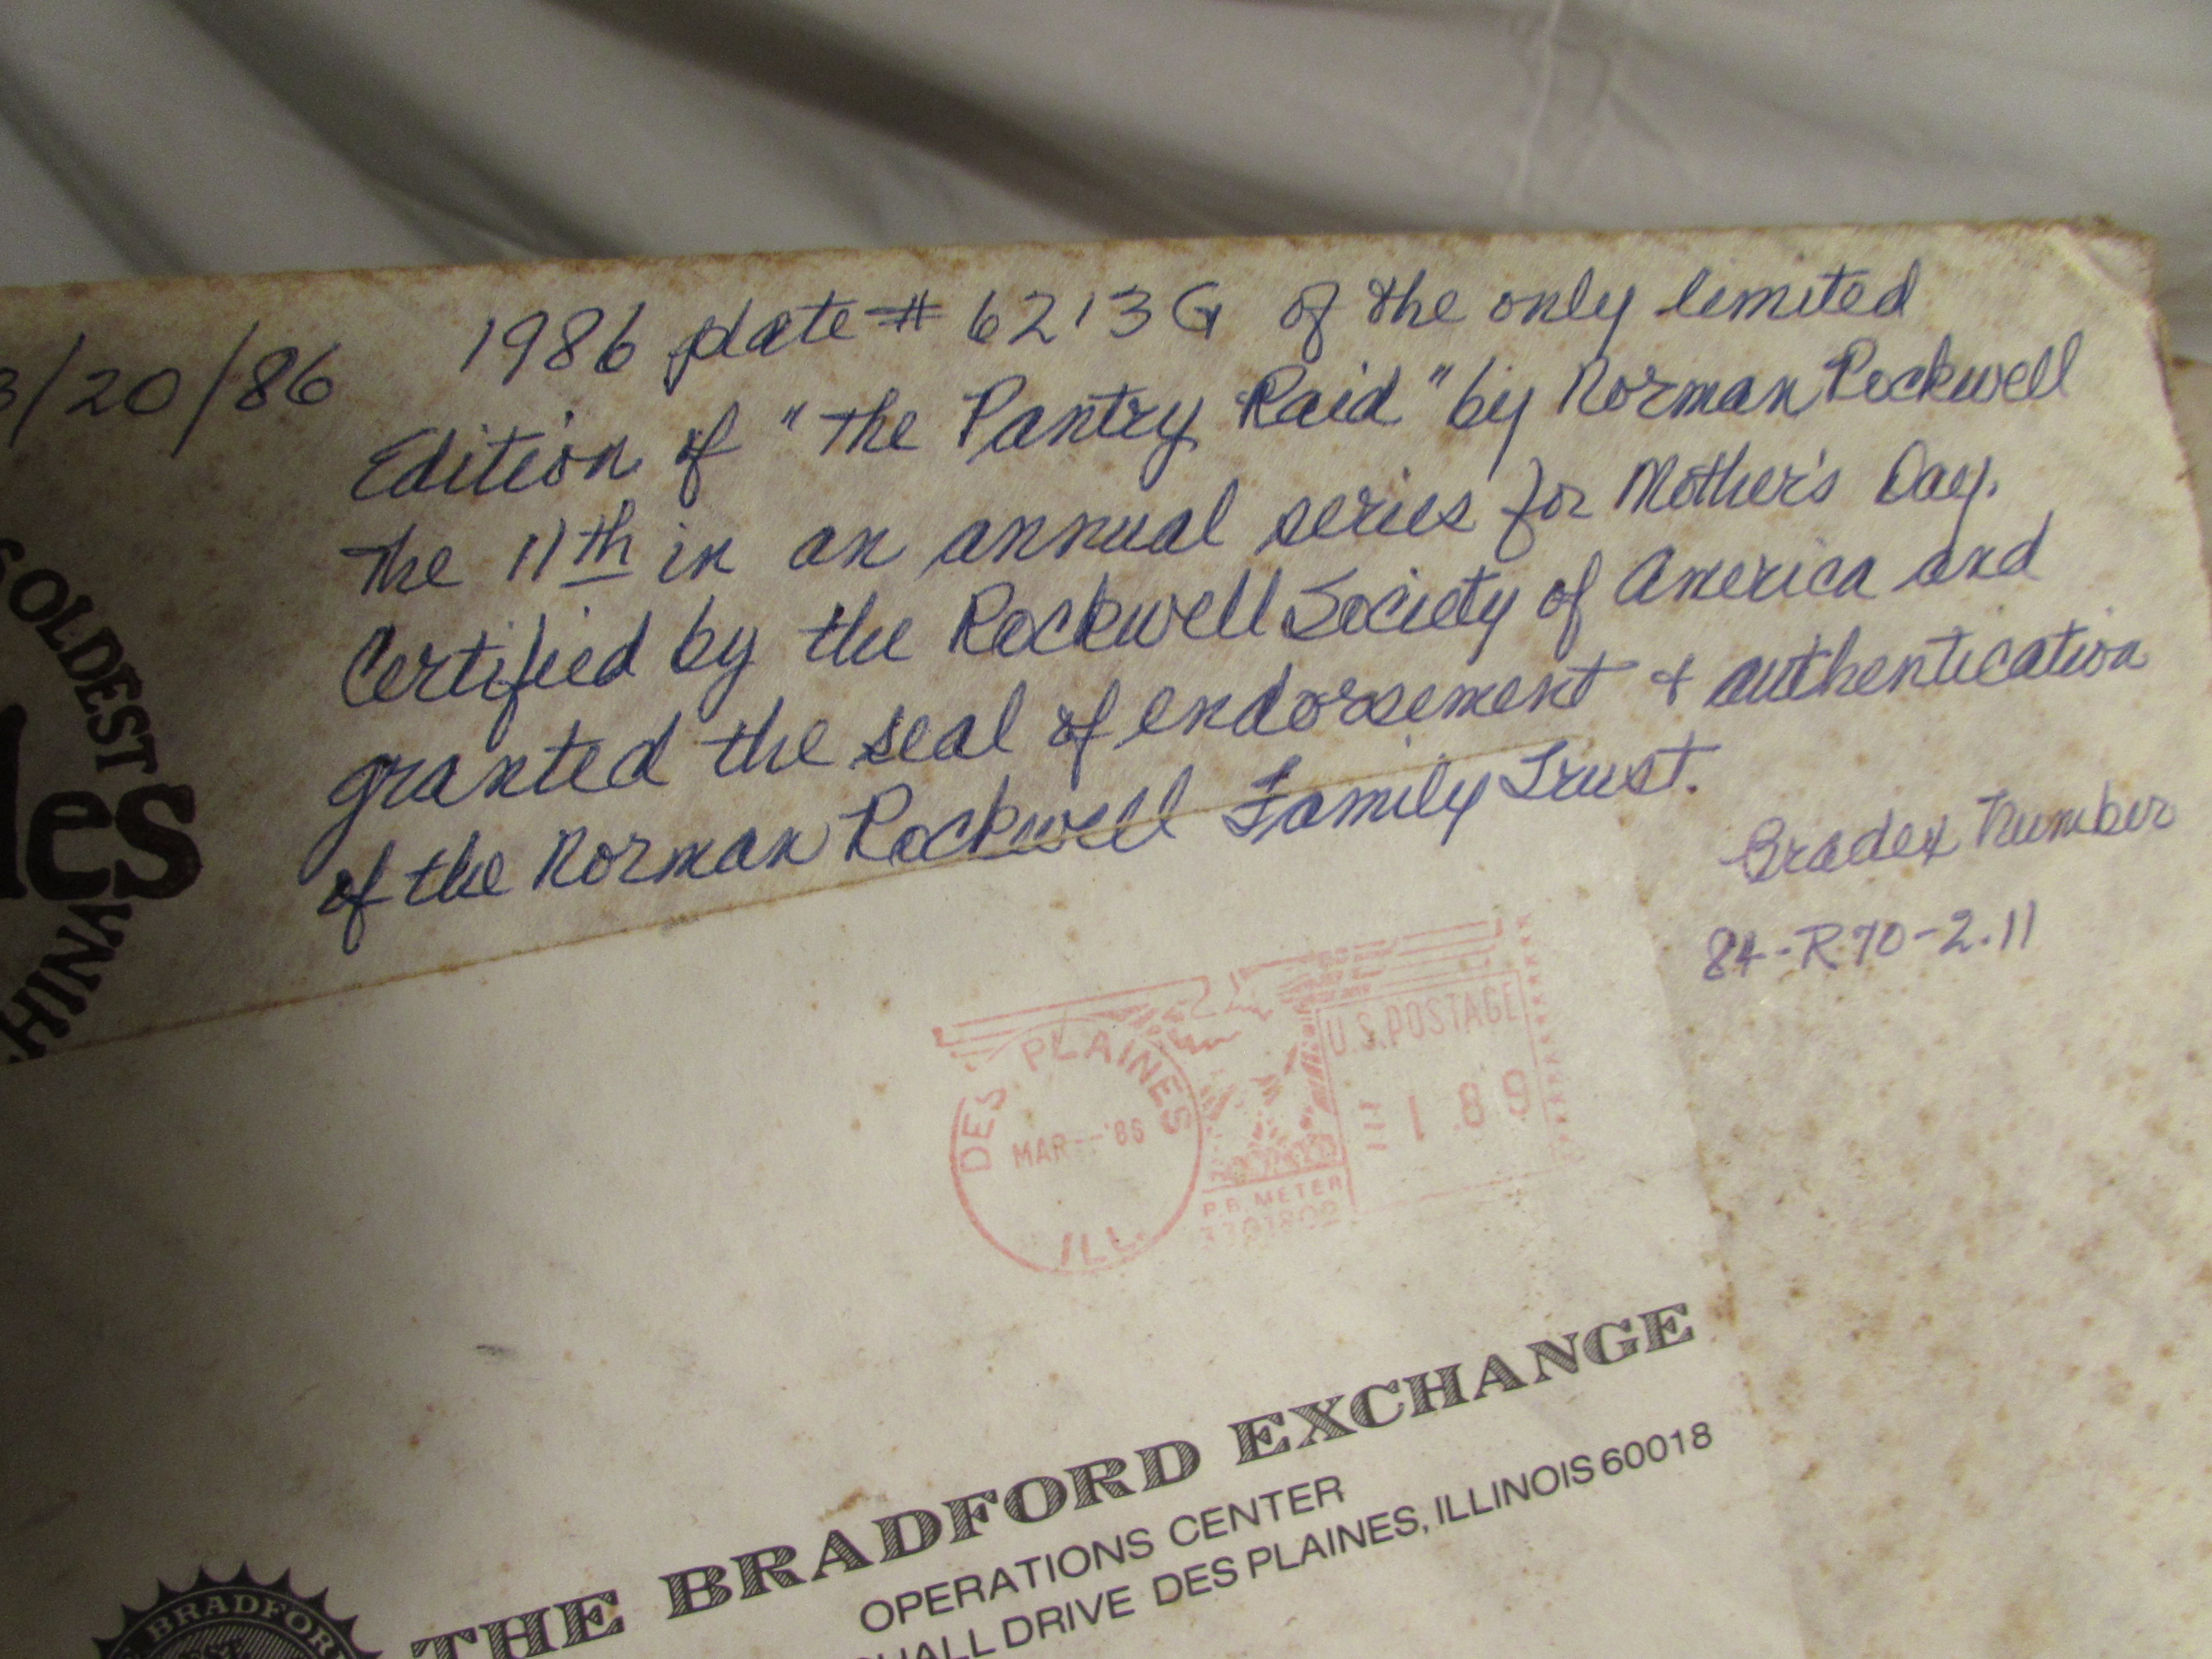 3/20/86
1986 plate # 6213G of the only limited
Edition of "The Pantry Raid" by Norman Rockwell
The 11th in an annual series for Mother's Day.
Certified by the Rockwell Society of America and
granted the seal of endorsement + authentication
of the Norman Rockwell Family Trust.
Bradex Number
84-R70-2.11
OLDEST
les
HINA
DES PLAINES
MAR '86
ILL.
U.S. POSTAGE
1.89
P.B. METER
THE BRADFORD EXCHANGE
OPERATIONS CENTER
HALL DRIVE DES PLAINES, ILLINOIS 60018
BRADFOR